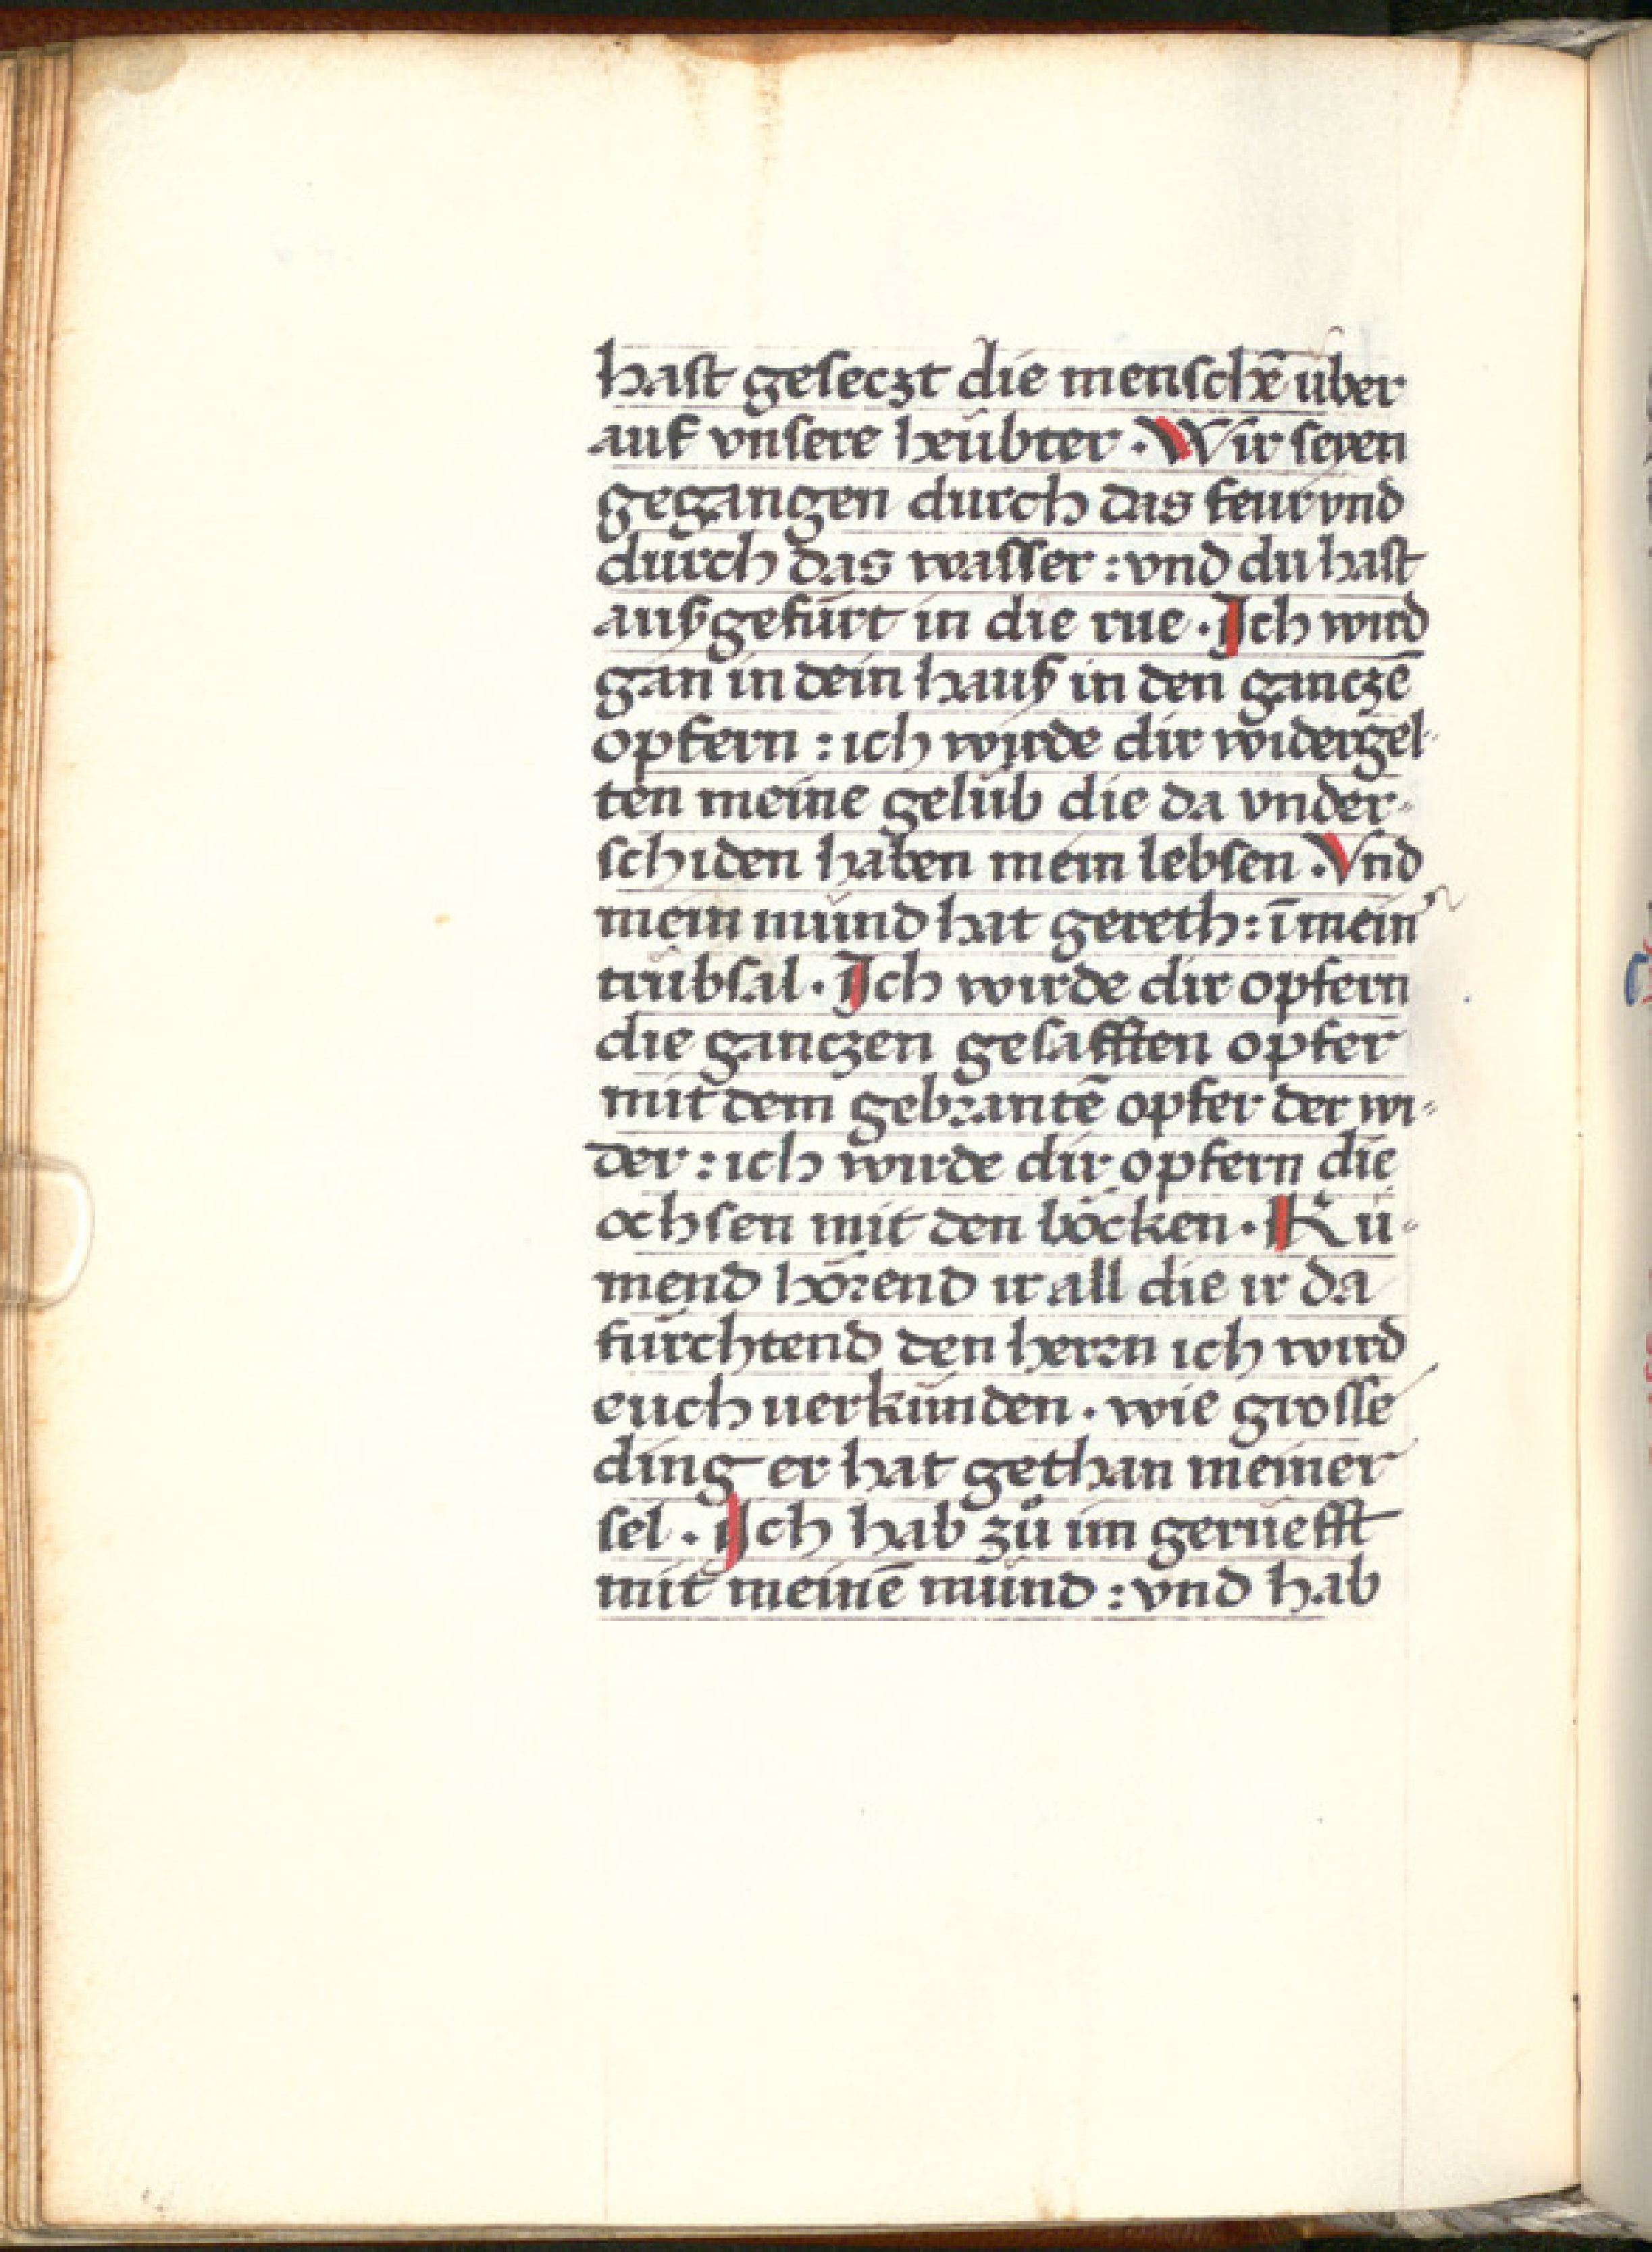 hast geseczt die menschē über
auf vnsere heübter · Wir seyen
gegangen durch das feur vnd
durch das wasser : vnd du hast
außgefürt in die rue · Ich wird
gan in dein hauß in den ganczē
opfern : ich wirde dir widergel-
ten meine gelüb die da vnder-
schiden haben mein lebsen · Vnd
mein mund hat gereth : ī mein'
trübsal · Ich wirde dir opfern
die ganczen gesafften opfer
mit dem gebrantē opfer der wi-
der : ich wirde dir opfern die
ochsen mit den böcken · Ku-
mend hörend ir all die ir da
fürchtend den herrn ich wird
euch uerkünden · wie grosse
ding er hat gethan meiner
sel · Ich hab zů im gerüefft
mit meinē mund : vnd hab